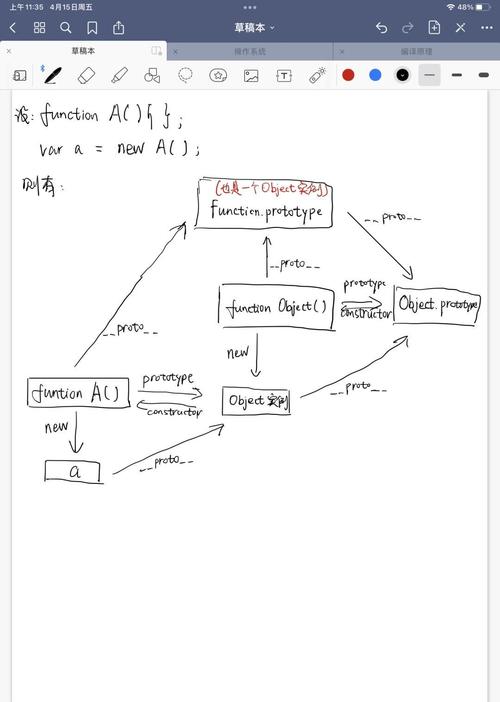 上午11:35 4月15日周五
48%
草稿本
草稿本
操作系统
编译原理
设: function A(){ };
var a = new A();
则有:
(也是一个Object实例)
Function.prototype
__proto__
__proto__
function Object()
prototype
constructor
Object.prototype
__proto__
new
funtion A()
prototype
constructor
Object 实例
__proto__
new
a
__proto__